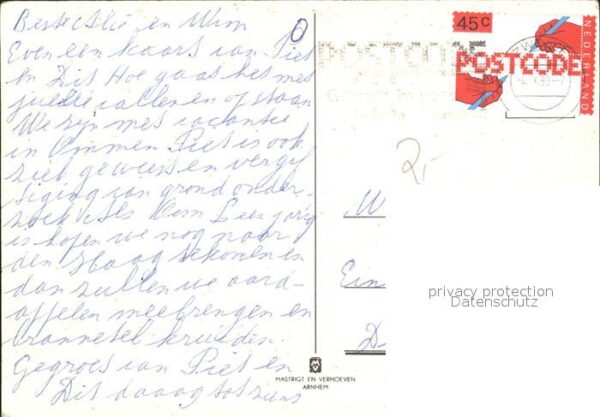 Beste Elie en Wim
Even een kaart van Piet
en Dit Hoe gaat het met
jullie allen en of staan
We zijn met vacantie
in Ommen Piet is ook
ziek geweest en vergif
tiging van grond onder-
zoek Als Wim Leen jarig
is hopen we nog naar
den Haag te komen en
dan zullen we aard-
appelen meebrengen en
brannetel kruiden.
Gegroet van Piet en
Dit daaag tot ziens
0
POSTCODE
45c
POSTCODE
NEDERLAND
2,-
W
Ein
D
privacy protection
Datenschutz
MASTRIGT EN VERHOEVEN
ARNHEM